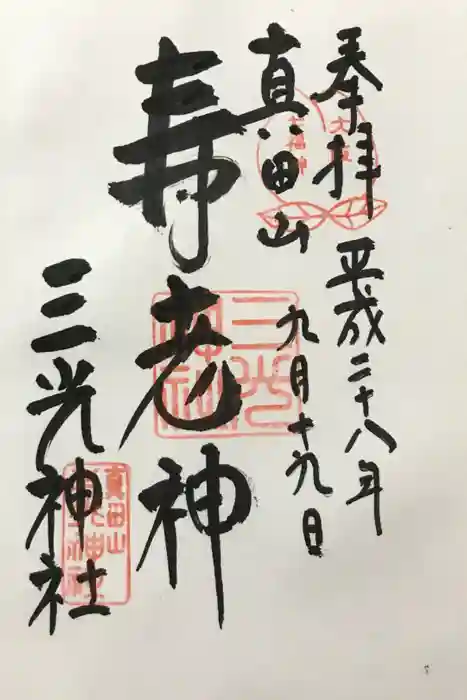 奉拝
平成二十八年
九月十九日
真田山
寿老神
三光神社
三光神社
真田山
三光神社